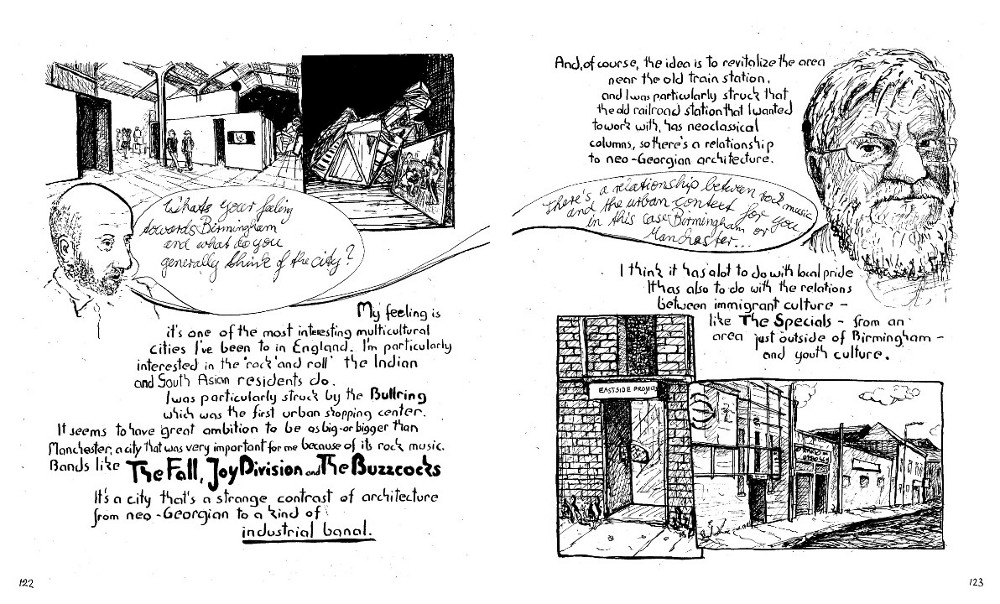 Whats your feeling
towards Birmingham
and what do you
generally think of the city?
My feeling is
it's one of the most interesting multicultural
cities I've been to in England. I'm particularly
interested in the "rock' and roll" the Indian
and South Asian residents do.
I was particularly struck by the Bullring
which was the first urban shopping center.
It seems to have great ambition to be as big-or bigger than
Manchester, a city that was very important for me because of its rock music.
Bands like The Fall, Joy Division and The Buzzcocks
It's a city that's a strange contrast of architecture
from neo-Georgian to a kind of
industrial banal.
122
And, of course, the idea is to revitalize the area
near the old train station.
and I was particularly struck that
the old railroad station that I wanted
to work with, has neoclassical
columns, so there's a relationship
to neo-Georgian architecture.
There's a relationship between rock music
and the urban context for you
in this case: Birmingham or
Manchester...
I think it has alot to do with local pride
It has also to do with the relations
between immigrant culture -
like The Specials - from an
area just outside of Birmingham -
and youth culture.
EASTSIDE PROJECTS
123